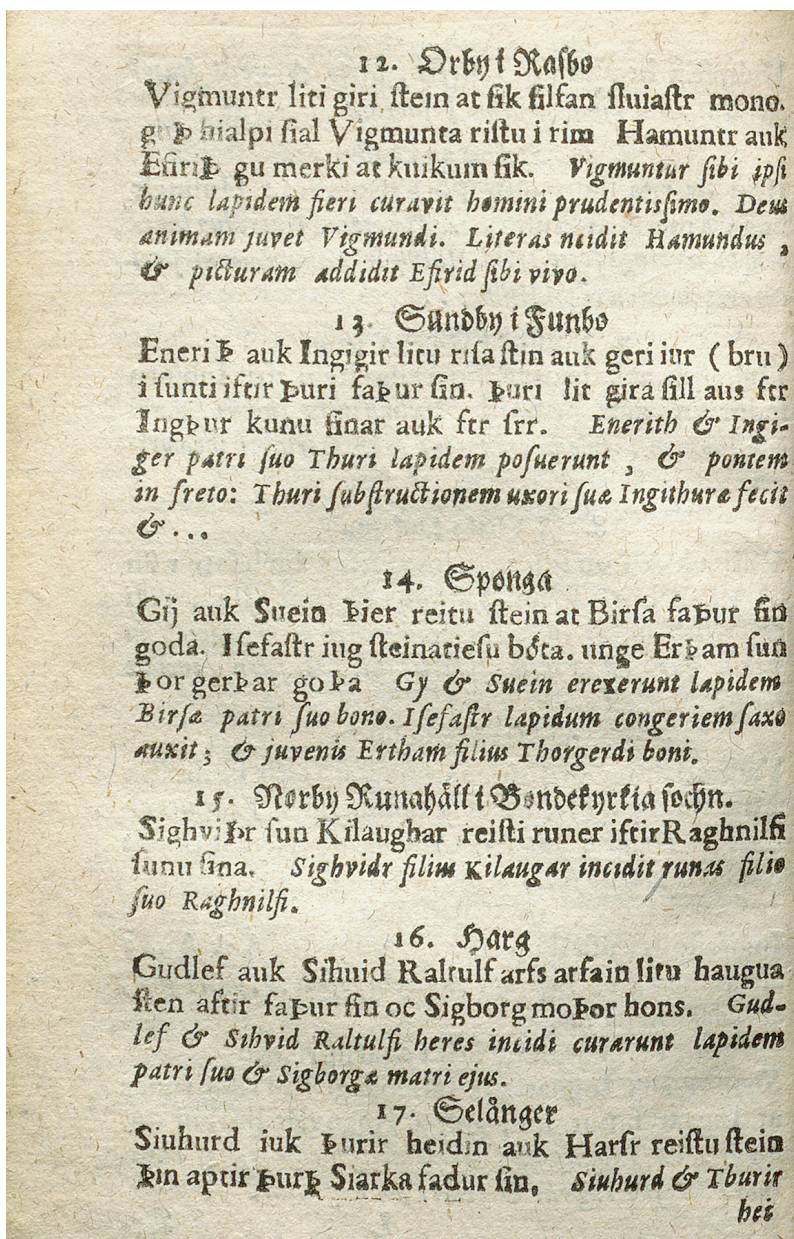 12. Orby i Rasbo
Vigmuntr liti giri stein at sik silfan sluiastr mono.
guÞ hialpi sial Vigmunta ristu i rim Hamuntr auk
EfiriÞ gu merki at kuikum sik. Vigmuntur sibi ipsi
hunc lapidem fieri curavit homini prudentissimo. Deus
animam juvet Vigmundi. Literas incidit Hamundus,
& picturam addidit Efirid sibi vivo.
13. Sundby i Funbo
EneriÞ auk Ingigir litu risa stin auk geri iur (bru)
i sunti iftir Þuri faÞur sin. Þuri lit gira sill aus ftr
IngÞur kunu sinar auk ftr srr. Enerith & Ingi-
ger patri suo Thuri lapidem posuerunt, & pontem
in freto: Thuri substructionem uxori suæ Ingithuræ fecit
& ...
14. Sponga
Gij auk Suein Þier reitu stein at Birsa faÞur sin
goda. Isefastr iug steinatiesu bóta. unge ErÞam sun
Þor gerÞar goÞa Gy & Suein erexerunt lapidem
Birsæ patri suo bono. Isefastr lapidum congeriem saxo
auxit; & juvenis Ertham filius Thorgerdi boni.
15. Norby Runahäll i Bondekyrkia sochn.
SighviÞr sun Kilaughar reisti runer iftir Raghnilfi
sunu sina. Sighvidr filius Kilaugar incidit runas filio
suo Raghnilfi.
16. Harg
Gudlef auk Sihuid Raltulf arfs arfain litu haugua
sten aftir faÞur sin oc Sigborg moÞor hons. Gud-
lef & Sihvid Raltulfi heres incidi curarunt lapidem
patri suo & Sigborgæ matri ejus.
17. Selånger
Siuhurd iuk Þurir heidin auk Harfr reistu stein
Þin aptir ÞurÞ Siarka fadur sin. Siuhurd & Thurir
hei